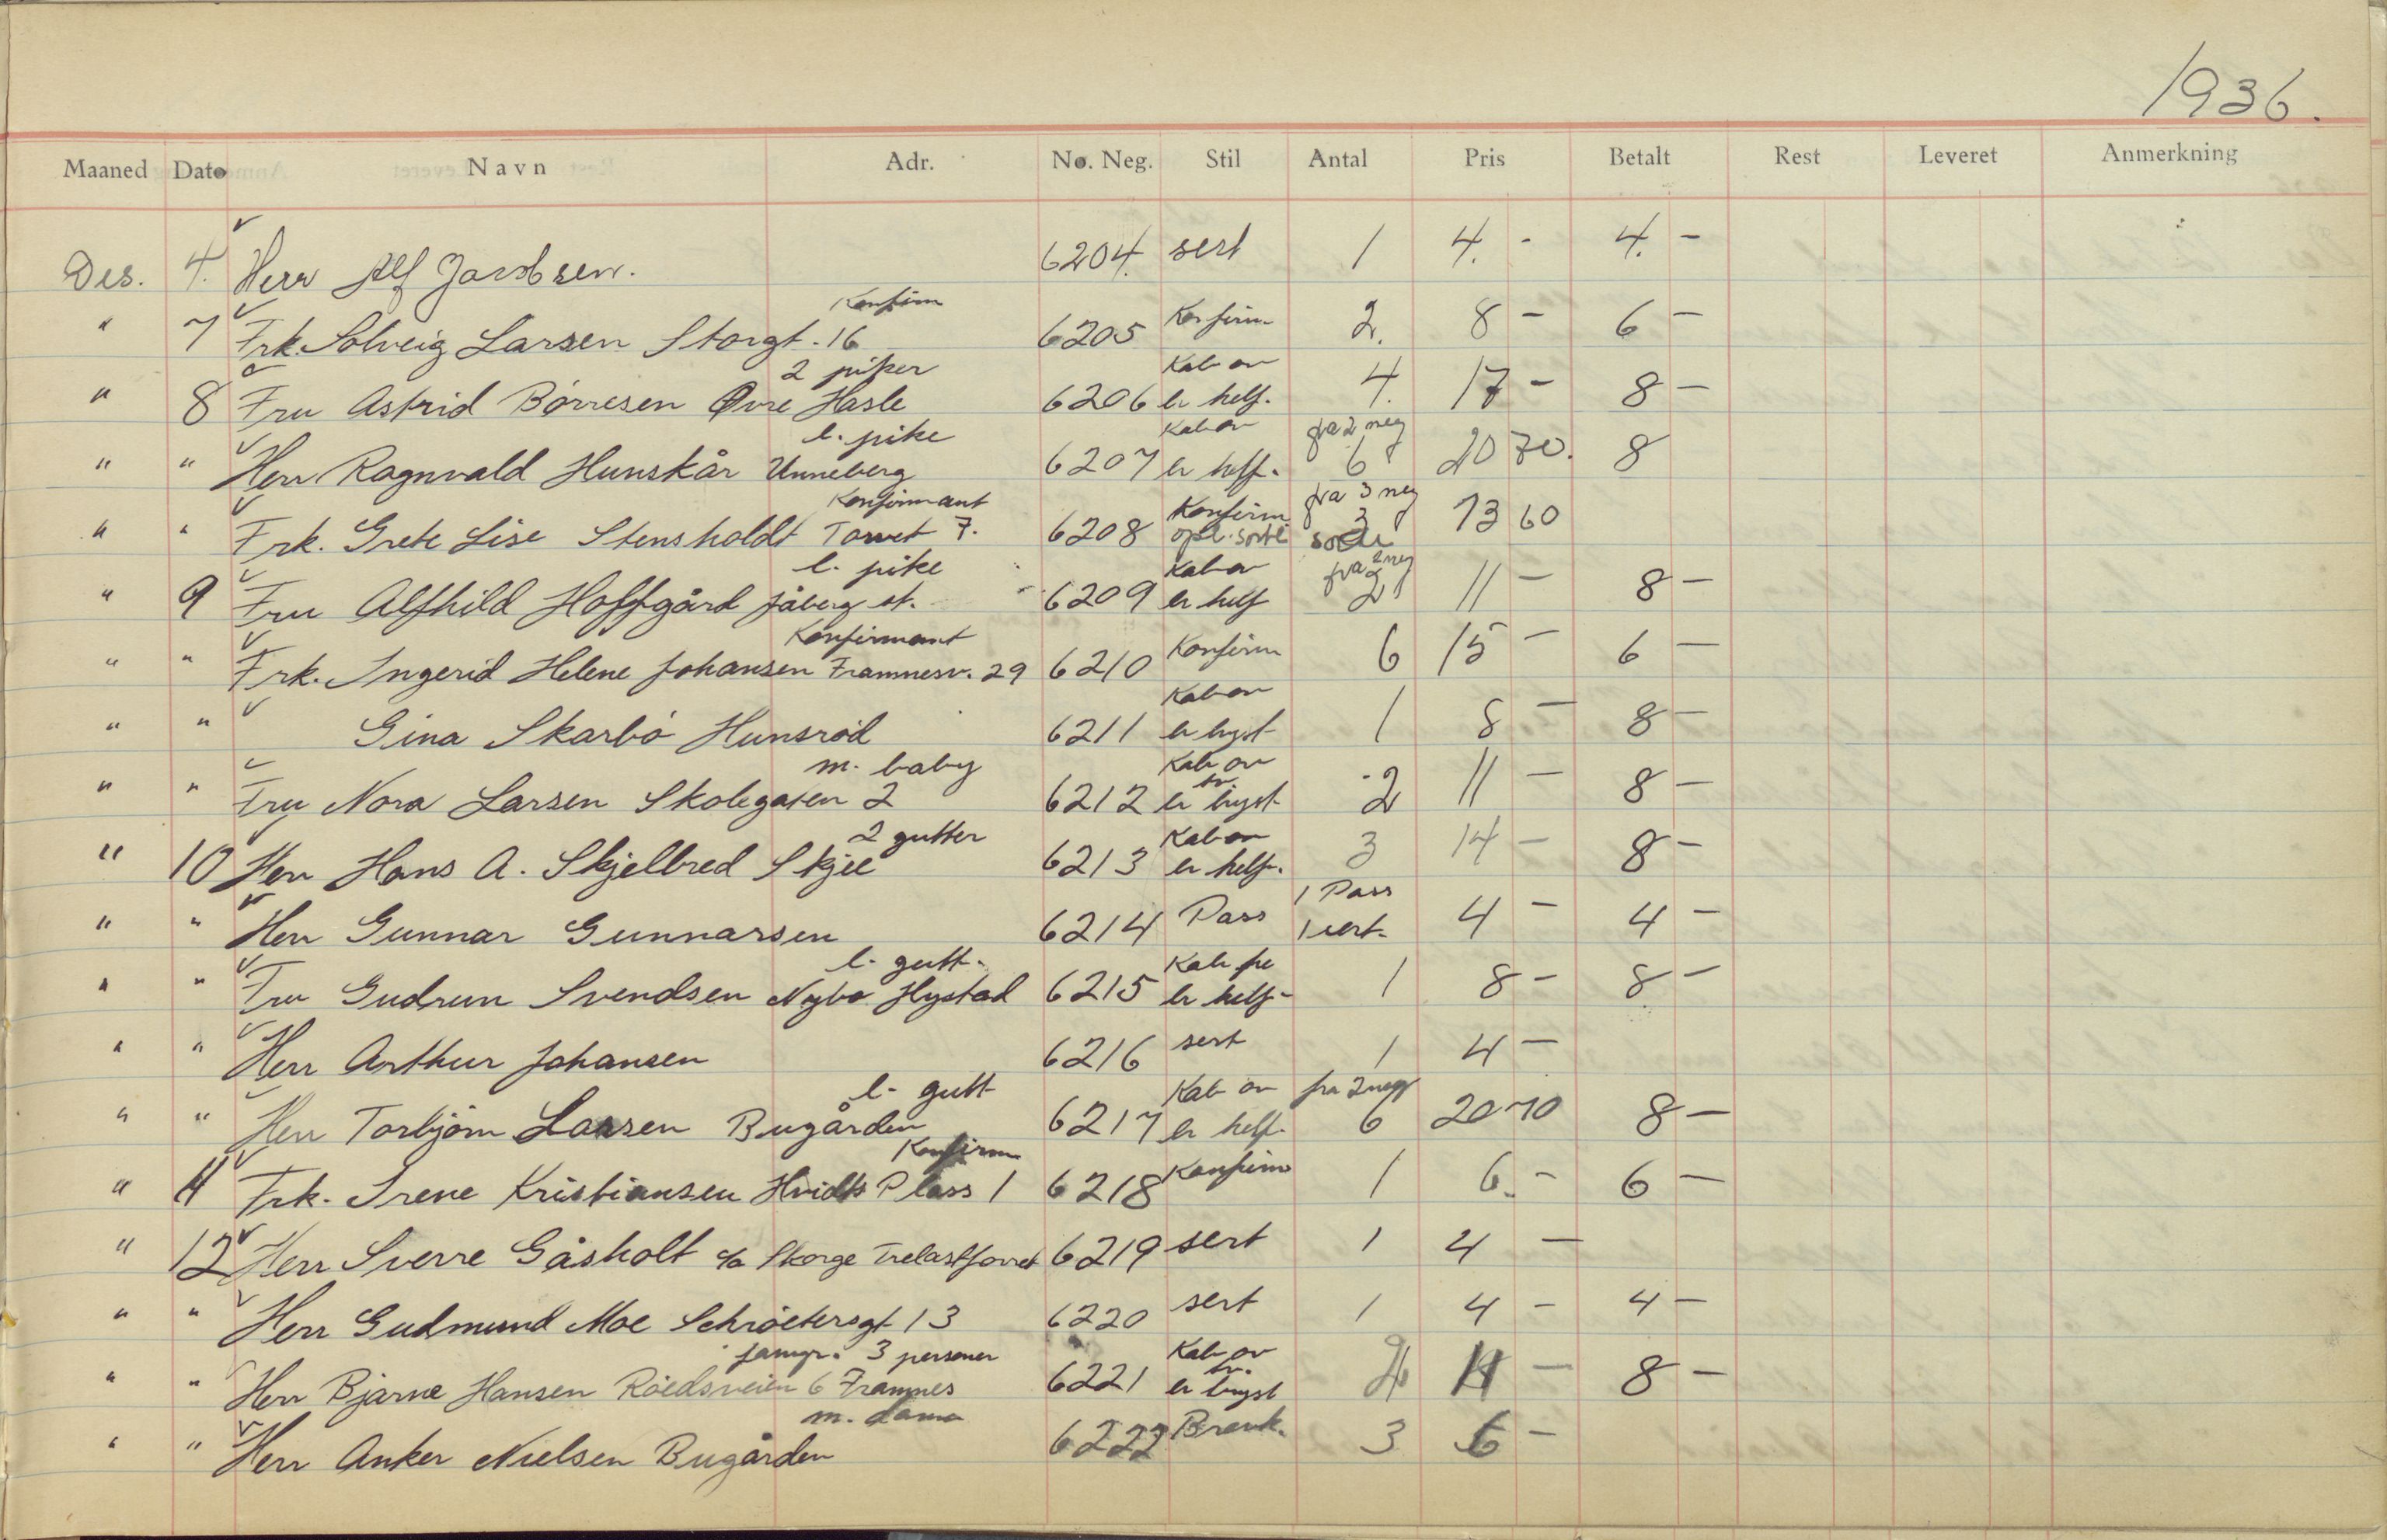 1936.
Maaned Dato Navn Adr. No. Neg. Stil Antal Pris Betalt Rest Leveret Anmerkning
Des. 4. Herr Alf Jacobsen. 6204. sert 1 4. - 4. -
Konfirm
" 7 Frk. Solveig Larsen Storgt. 16 6205 Konfirm. 2. 8 - 6 -
2 piker Kab ov
" 8 Fru Astrid Börresen Øvre Hasle 6206 er helf. 4. 17 - 8 -
l. pike Kab ov fra 2 neg
" " Herr Ragnvald Hunskår Unneberg 6207 er helf. 6 20 70. 8
Konfirmant Konfirm fra 3 neg
" " Frk. Grete Lise Stensholdt Torvet 7. 6208 opl. sorte 3 sorte 13 60
l. pike Kab ov fra 2 neg
" 9 Fru Alfhild Hoffgård Jåberg st. 6209 er helf 2 11 - 8 -
Konfirmant
" " Frk. Ingerid Helene Johansen Framnesv. 29 6210 Konfirm 6 15 - 6 -
Kab ov
" " Gina Skarbö Hunsröd 6211 er bryst 1 8 - 8 -
m. baby Kab ov
" " Fru Nora Larsen Skolegaten 2 6212 er br. bryst 2 11 - 8 -
2 gutter Kab ov
" 10 Herr Hans A. Skjelbred Skjee 6213 er helf. 3 14 - 8 -
1 Pass
" " Herr Gunnar Gunnarsen 6214 Pass 1 sert. 4 - 4 -
l. gutt. Kab fre
" " Fru Gudrun Svendsen Nybo Hystad 6215 er helf- 1 8 - 8 -
" " Herr Arthur Johansen 6216 sert 1 4 -
l. gutt Kab ov fra 2 neg
" " Herr Torbjörn Larsen Bugården 6217 er helf. 6 20 70 8 -
Konfirm
" 11 Frk. Irene Kristiansen Hvidts Plass 1 6218 Konfirm 1 6. - 6 -
" 12 Herr Sverre Gåsholt c/o Skorge Trelastforret 6219 sert 1 4 -
" " Herr Gudmund Moe Schröetersgt 13 6220 sert 1 4 - 4 -
famgr. 3 personer Kab ov
" " Herr Bjarne Hansen Röedsveien 6 Framnes 6221 er br. bryst - 8 -
m. dame
" " Herr Anker Nielsen Bugården 6222 Brevk. 3 6 -